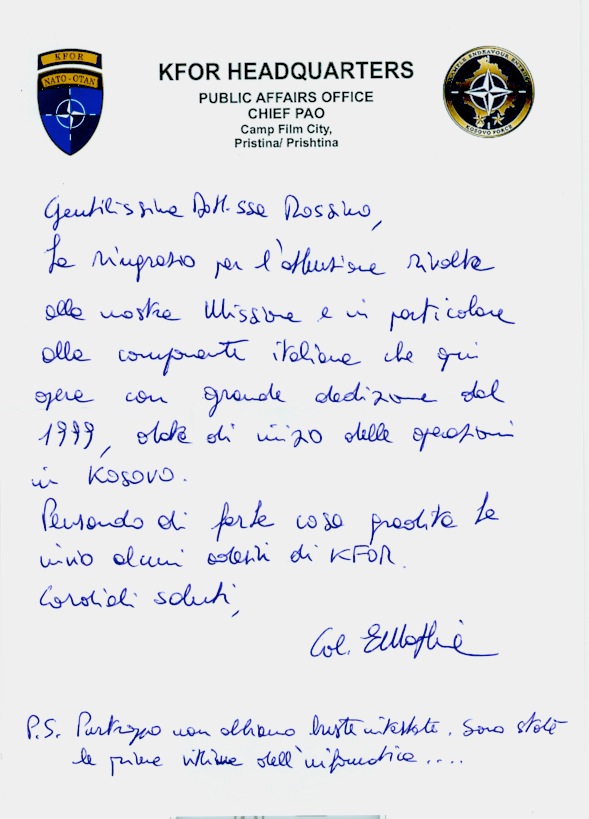 KFOR
NATO-OTAN
KFOR HEADQUARTERS
PUBLIC AFFAIRS OFFICE
CHIEF PAO
Camp Film City,
Pristina/ Prishtina
KOSOVO FORCE
Gentilissima Dott.ssa Rossino,
La ringrazio per l'attenzione rivolta
alla nostra Missione e in particolare
alla componente italiana che qui
opera con grande dedizione dal
1999, data di inizio delle operazioni
in Kosovo.
Pensando di farle cosa gradita Le
invio alcuni adesivi di KFOR.
Cordiali saluti,
Col.
P.S. Purtroppo non abbiamo buste intestate. Sono state
le prime vittime dell'informatica....